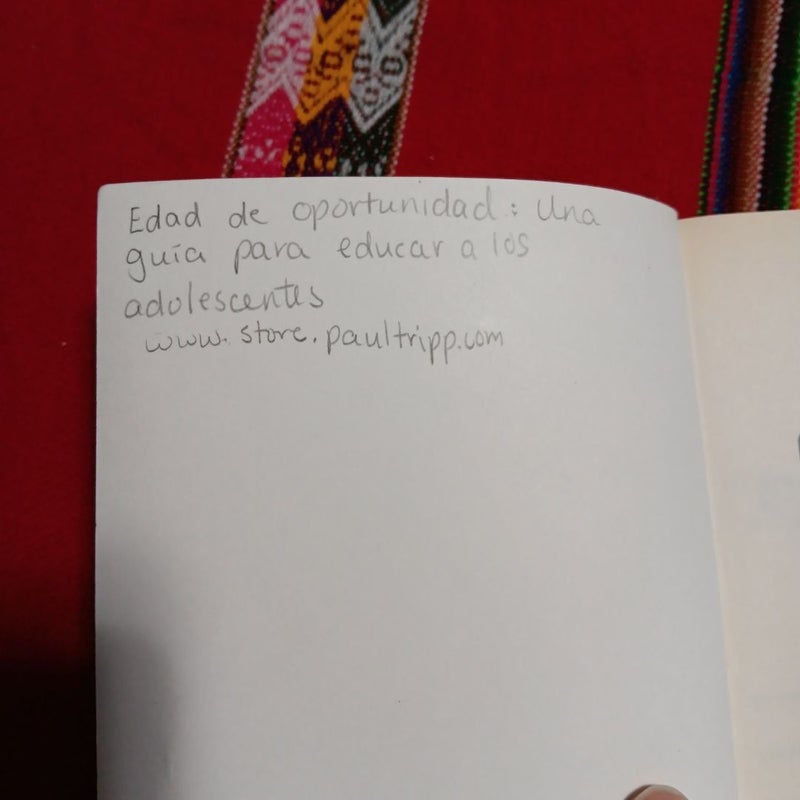 Edad de oportunidad: Una
guía para educar a los
adolescentes
www.store.paultripp.com